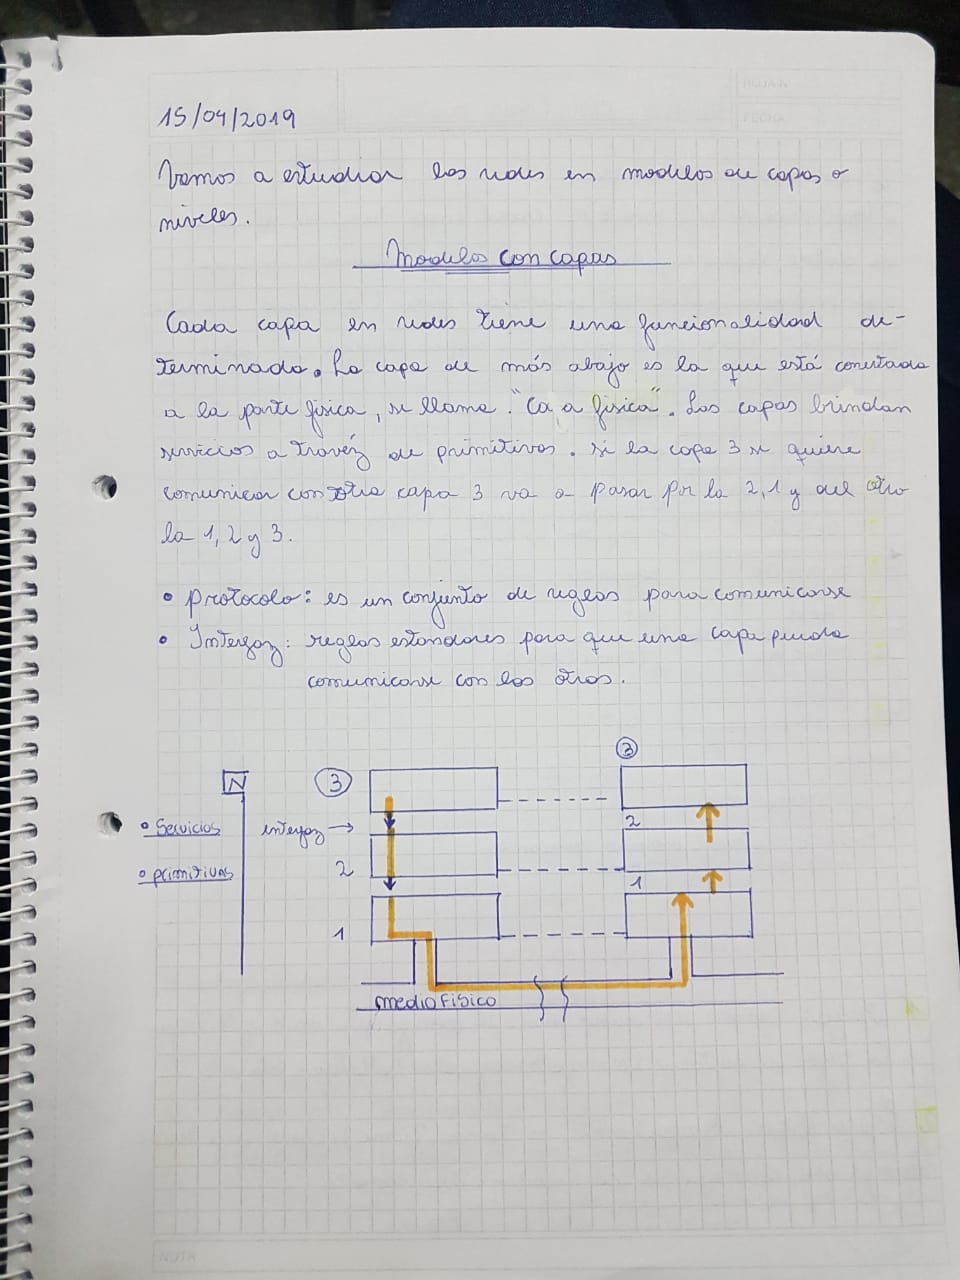 HOJA Nº
FECHA
15/04/2019
Vamos a estudiar las redes en modelos de capas o
niveles.
Modelos con capas
Cada capa en redes tiene una funcionalidad de-
terminada. La capa de más abajo es la que está conectada
a la parte física, se llama "Ca a física". Las capas brindan
servicios a travéz de primitivas. si la capa 3 se quiere
comunicar con otra capa 3 va a pasar por la 2, 1 y del otro
la 1, 2 y 3.
• protocolo: es un conjunto de reglas para comunicarse
• Interfaz: reglas estandares para que una capa pueda
comunicarse con las otras.
N
• Servicios
• primitivas
3
interfaz →
2
1
3
2
1
medio físico
NOTA